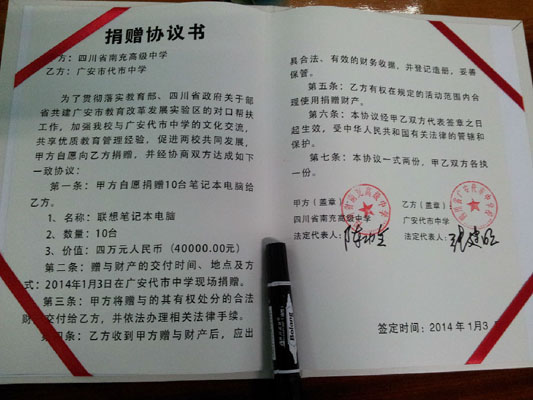 捐赠协议书
方：四川省南充高级中学
乙方：广安市代市中学
为了贯彻落实教育部、四川省政府关于部
省共建广安市教育改革发展实验区的对口帮扶
工作，加强我校与广安代市中学的文化交流，
共享优质教育管理经验，促进两校共同发展，
甲方自愿向乙方捐赠，并经协商双方达成如下
一致协议：
第一条：甲方自愿捐赠10台笔记本电脑给
乙方。
1、名称：联想笔记本电脑
2、数量：10台
3、价值：四万元人民币（40000.00元）
第二条：赠与财产的交付时间、地点及方
式：2014年1月3日在广安代市中学现场捐赠。
第三条：甲方将赠与的其有权处分的合法
财 交付给乙方，并依法办理相关法律手续。
条：乙方收到甲方赠与财产后，应出
具合法、有效的财务收据，并登记造册，妥善
保管。
第五条：乙方有权在规定的活动范围内合
理使用捐赠财产。
第六条：本协议经甲乙双方代表签章之日
起生效，受中华人民共和国有关法律的管辖和
保护。
第七条：本协议一式两份，甲乙双方各执
一份。
甲方（盖章）
四川省南充高级中学
法定代表人：
乙方（盖章）
广安代市中学
法定代表人：
签定时间：2014年1月3